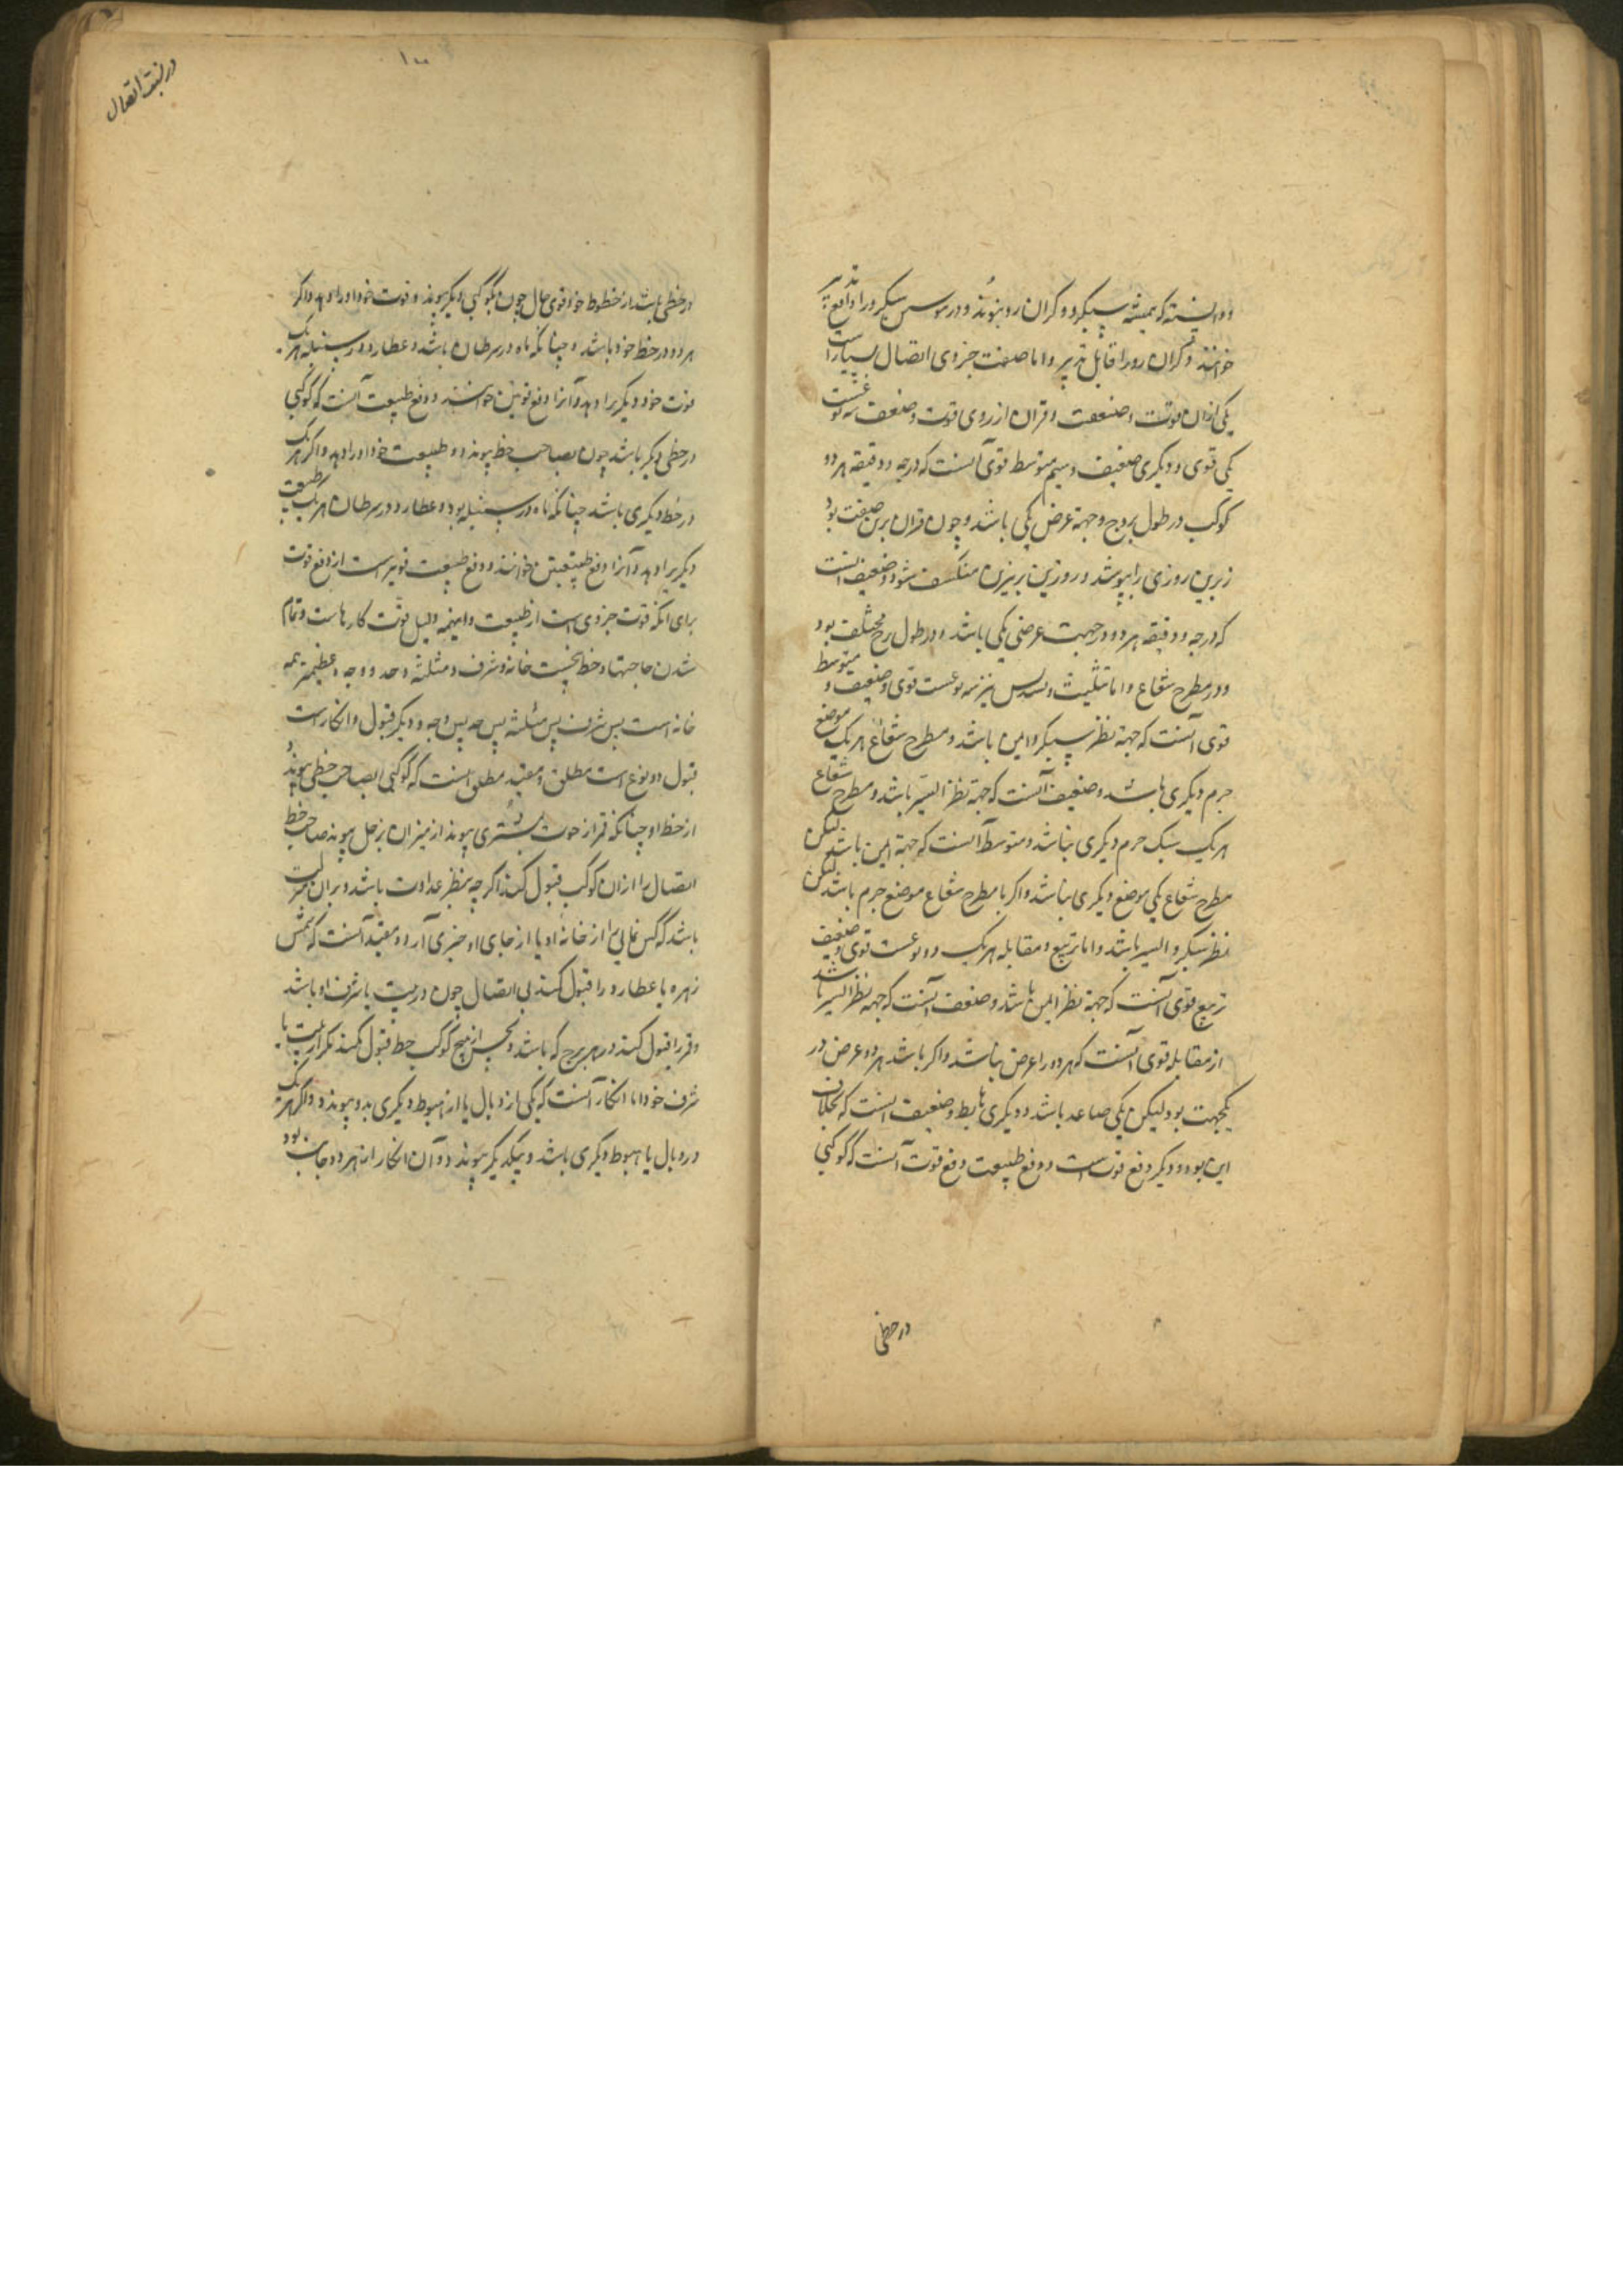 و دانسته که همیشه سبکرو و گران رو بپیوندد و در مو سبکرو را دافع تدبیر
خوانند و گران رو را قابل تدبیر و اما صفت جزوی اتصال بسیار است
یکی ازان قوت و ضعفت و قران از روی قوت و ضعف سه نوعست
یکی قوی و دیگری ضعیف و سیم متوسط قوی آنست که درجه و دقیقه هر دو
کوکب در طول بروج و جهة عرض یکی باشد و چون قران برین صفت بود
زیرین روزی را بپوشد و زیرین بزبرین منکسف شود و ضعیف آنست
که درجه و دقیقه هر دو در جهت عرضی یکی باشد و در طول برج مختلف بود
و در مطرح شعاع و اما تثلیث و تسدیس نیز سه نوعست قوی و ضعیف و متوسط
قوی آنست که جهة نظر سبکرو ایمن باشد و مطرح شعاع هر یک موضع
جرم دیگری باشد و ضعیف آنست که جهة نظر ایسر باشد و مطرح شعاع
هر یک جرم دیگری نباشد و متوسط آنست که جهة ایمن باشد لیکن
مطرح شعاع یکی موضع دیگری نباشد و اگر با مطرح شعاع موضع جرم باشد لیکن
نظر سبکرو ایسر باشد و اما تربیع و مقابله هر یک دو نوعست قوی و ضعیف
تربیع قوی آنست که جهة نظر ایمن باشد و ضعف آنست که جهة نظر ایسر باشد
از مقابله قوی آنست که هر دو را عرض نباشد و اگر باشد هر دو عرض در
یکجهت بود لیکن یکی صاعد باشد و دیگری هابط و ضعیف آنست که بخلاف
این بود و دیگر دفع قوت است و دفع طبیعت دفع قوت آنست که کوکبی
در خطی
در نسبت اتصال
۱۰۰
در خطی باشد از خطوط خود قوی حال چون بکوکبی دیگر پیوندد و قوت خود او را دهد و اگر
هر دو در خط خود باشد و چنانکه ماه در سرطان باشد و عطارد در سنبله هر یک
قوت خود دیگر برا دهد و آنرا دفع قوتین خوانند و دفع طبیعت آنست که کوکبی
در خطی دیگر باشد چون بصاحب خط پیوندد و طبیعت خود او را دهد و اگر هر یک
در خط دیگری باشد چنانکه ماه در سنبله بود و عطارد در سرطان هر یک طبیعت
دیگر برا دهد و آنرا دفع طبیعتین خوانند و دفع طبیعت قویتر است از دفع قوت
برای آنکه قوت جزوی است از طبیعت و اینهمه دلیل قوت کارهاست و تمام
شدن حاجتها و خط پنجست خانه و شرف و مثلثه و حد و وجه و عظیمتر همه
خانه است پس شرف پس مثلثه پس حد پس وجه و دیگر قبول و انکار است
قبول دو نوع است مطلق و مقید مطلق آنست که کوکبی بصاحب خطی پیوندد
از خط او چنانکه قمر از حوت بمشتری پیوندد از میزان بزحل پیوندد صاحب خط
اتصال را ازان کوکب قبول کند اگر چه بنظر عداوت باشد و بران مثبت
باشد که کس غایبی را از خانه او یا از جای او خبری آرد و مقید آنست که شمس
زهره یا عطارد را قبول کند بی اتصال چون در بیت یا شرف او باشد
و قمر را قبول کند در هر برج که باشد و نحس از هیچ کوکب خط قبول نکند مگر از بیت یا
شرف خود اما انکار آنست که یکی از وبال یا از هبوط دیگری بدو پیوندد و اگر هر یک
در وبال یا هبوط دیگری باشد و بیکدیگر پیوندد و آن انکار از هر دو جانب بود